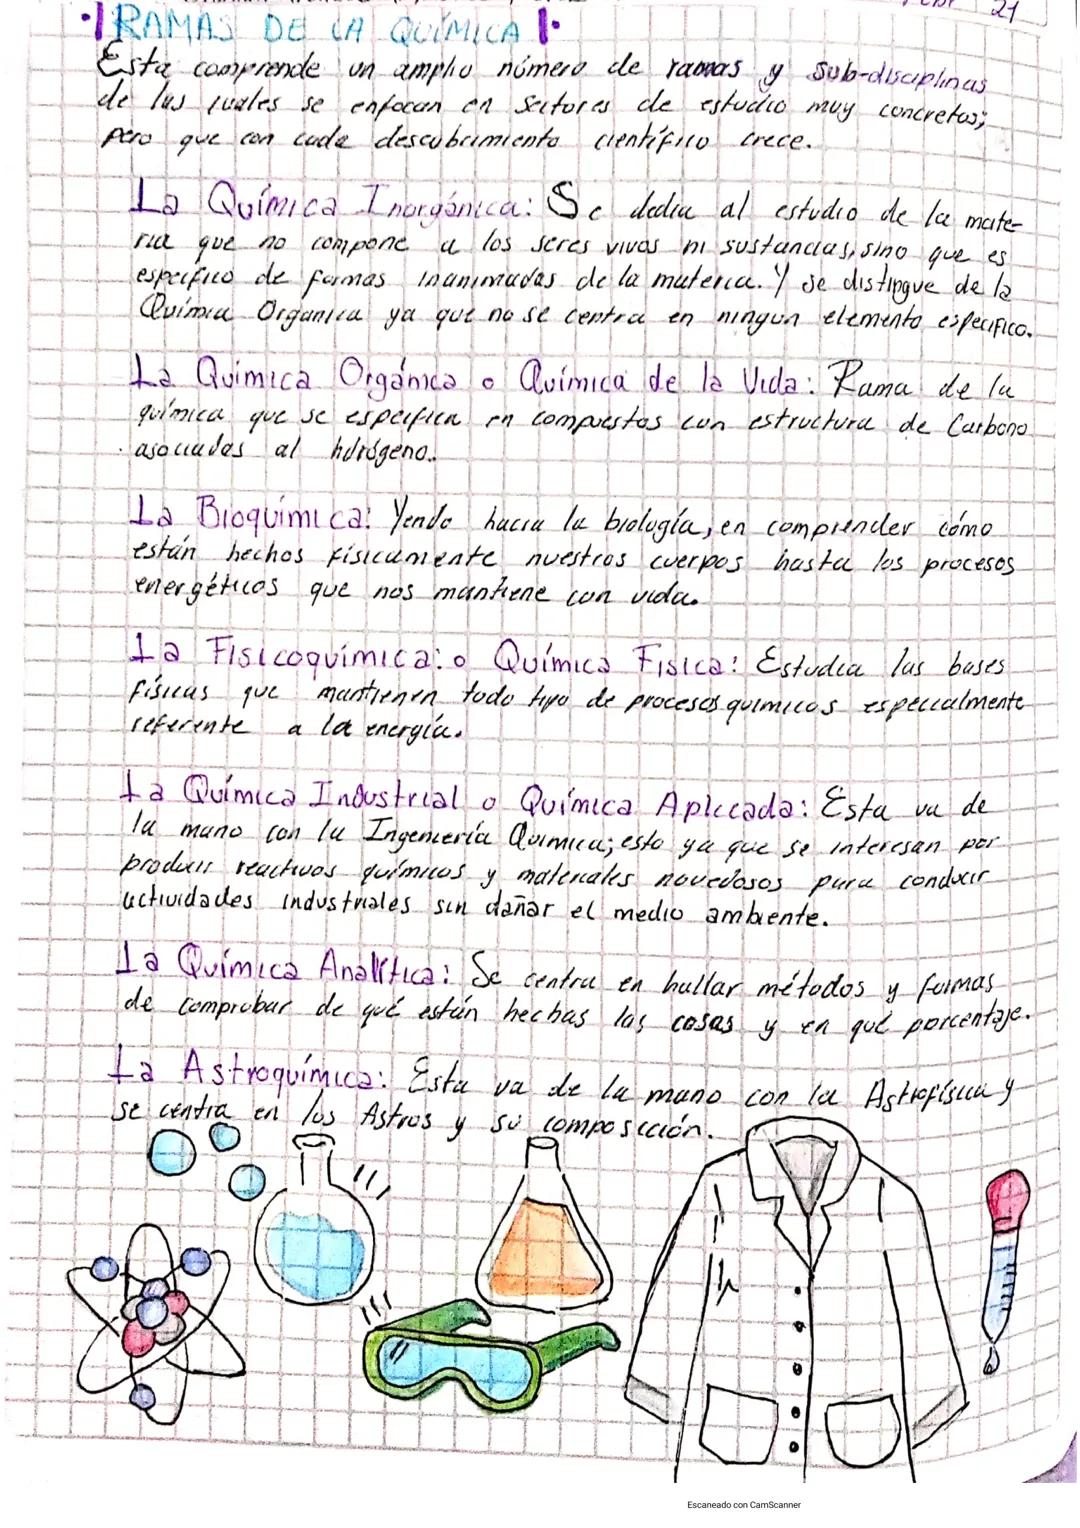 21
RAMAS DE LA QUÍMICA
Esta comprende un amplio número de ramas y sub-disciplinas
de las cuales se enfocan en sectores de estudio muy concretos;
pero que con cada descubrimiento científico crece.
La Química Inorgánica: Se dedica al estudio de la mate-
ria que no compone a los seres vivos ni sustancias, sino que es
específico de formas inanimadas de la materia. Y se distingue de la
Química Organica ya que no se centra en ningun elemento especifico.
La Quimica Orgánica o Química de la Vida: Rama de la
química que se especifica en compuestos con estructura de Carbono
asociadas al hidrógeno.
La Bioquímica: Yendo hacia la biología, en comprender cómo
están hechos físicamente nuestros cuerpos hasta los procesos
energéticos que nos mantiene con vida.
La Fisicoquímica: o Química Fisica: Estudia las bases
físicas que mantienen todo tipo de procesos quimicos especialmente
referente a la energía.
La Química Industrial o Química Aplicada: Esta va de
la mano con la Ingeniería Química; esto ya que se interesan por
producir reactivos químicos y materiales novedosos para conducir
actividades industriales sin dañar el medio ambiente.
La Química Analítica: Se centra en hallar métodos y formas
de comprobar de qué están hechas las cosas y en qué porcentaje.
La Astroquímica: Esta va de la mano con la Astrofísica y
se centra en los Astros y su composición.
Escaneado con CamScanner